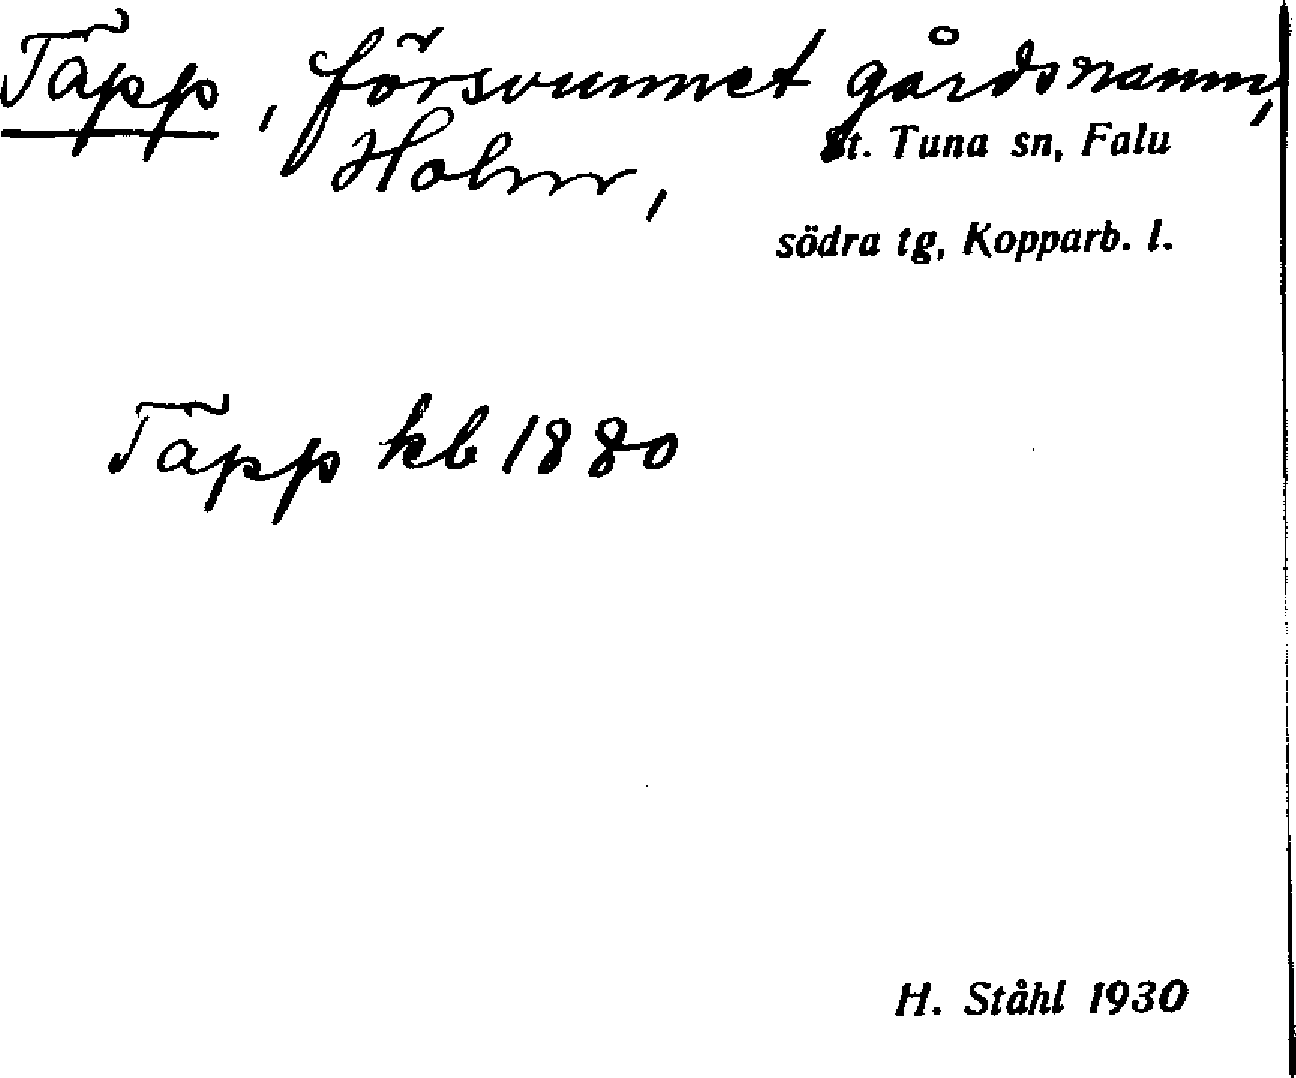 Täpp, försvunnet gårdsnamn,
Holm,
St. Tuna sn, Falu
södra tg, Kopparb. l.
Täpp kb 1880
H. Ståhl 1930